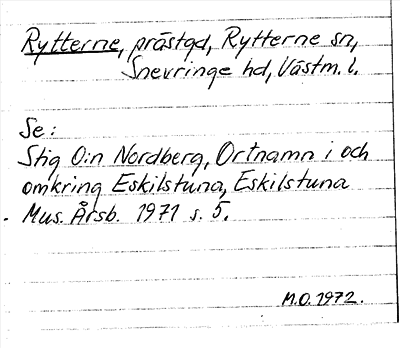 Rytterne, prästgd, Rytterne sn,
Snevringe hd, Västm. l.
Se:
Stig O:n Nordberg, Ortnamn i och
omkring Eskilstuna, Eskilstuna
Mus. Årsb. 1971 s. 5.
M.O. 1972.